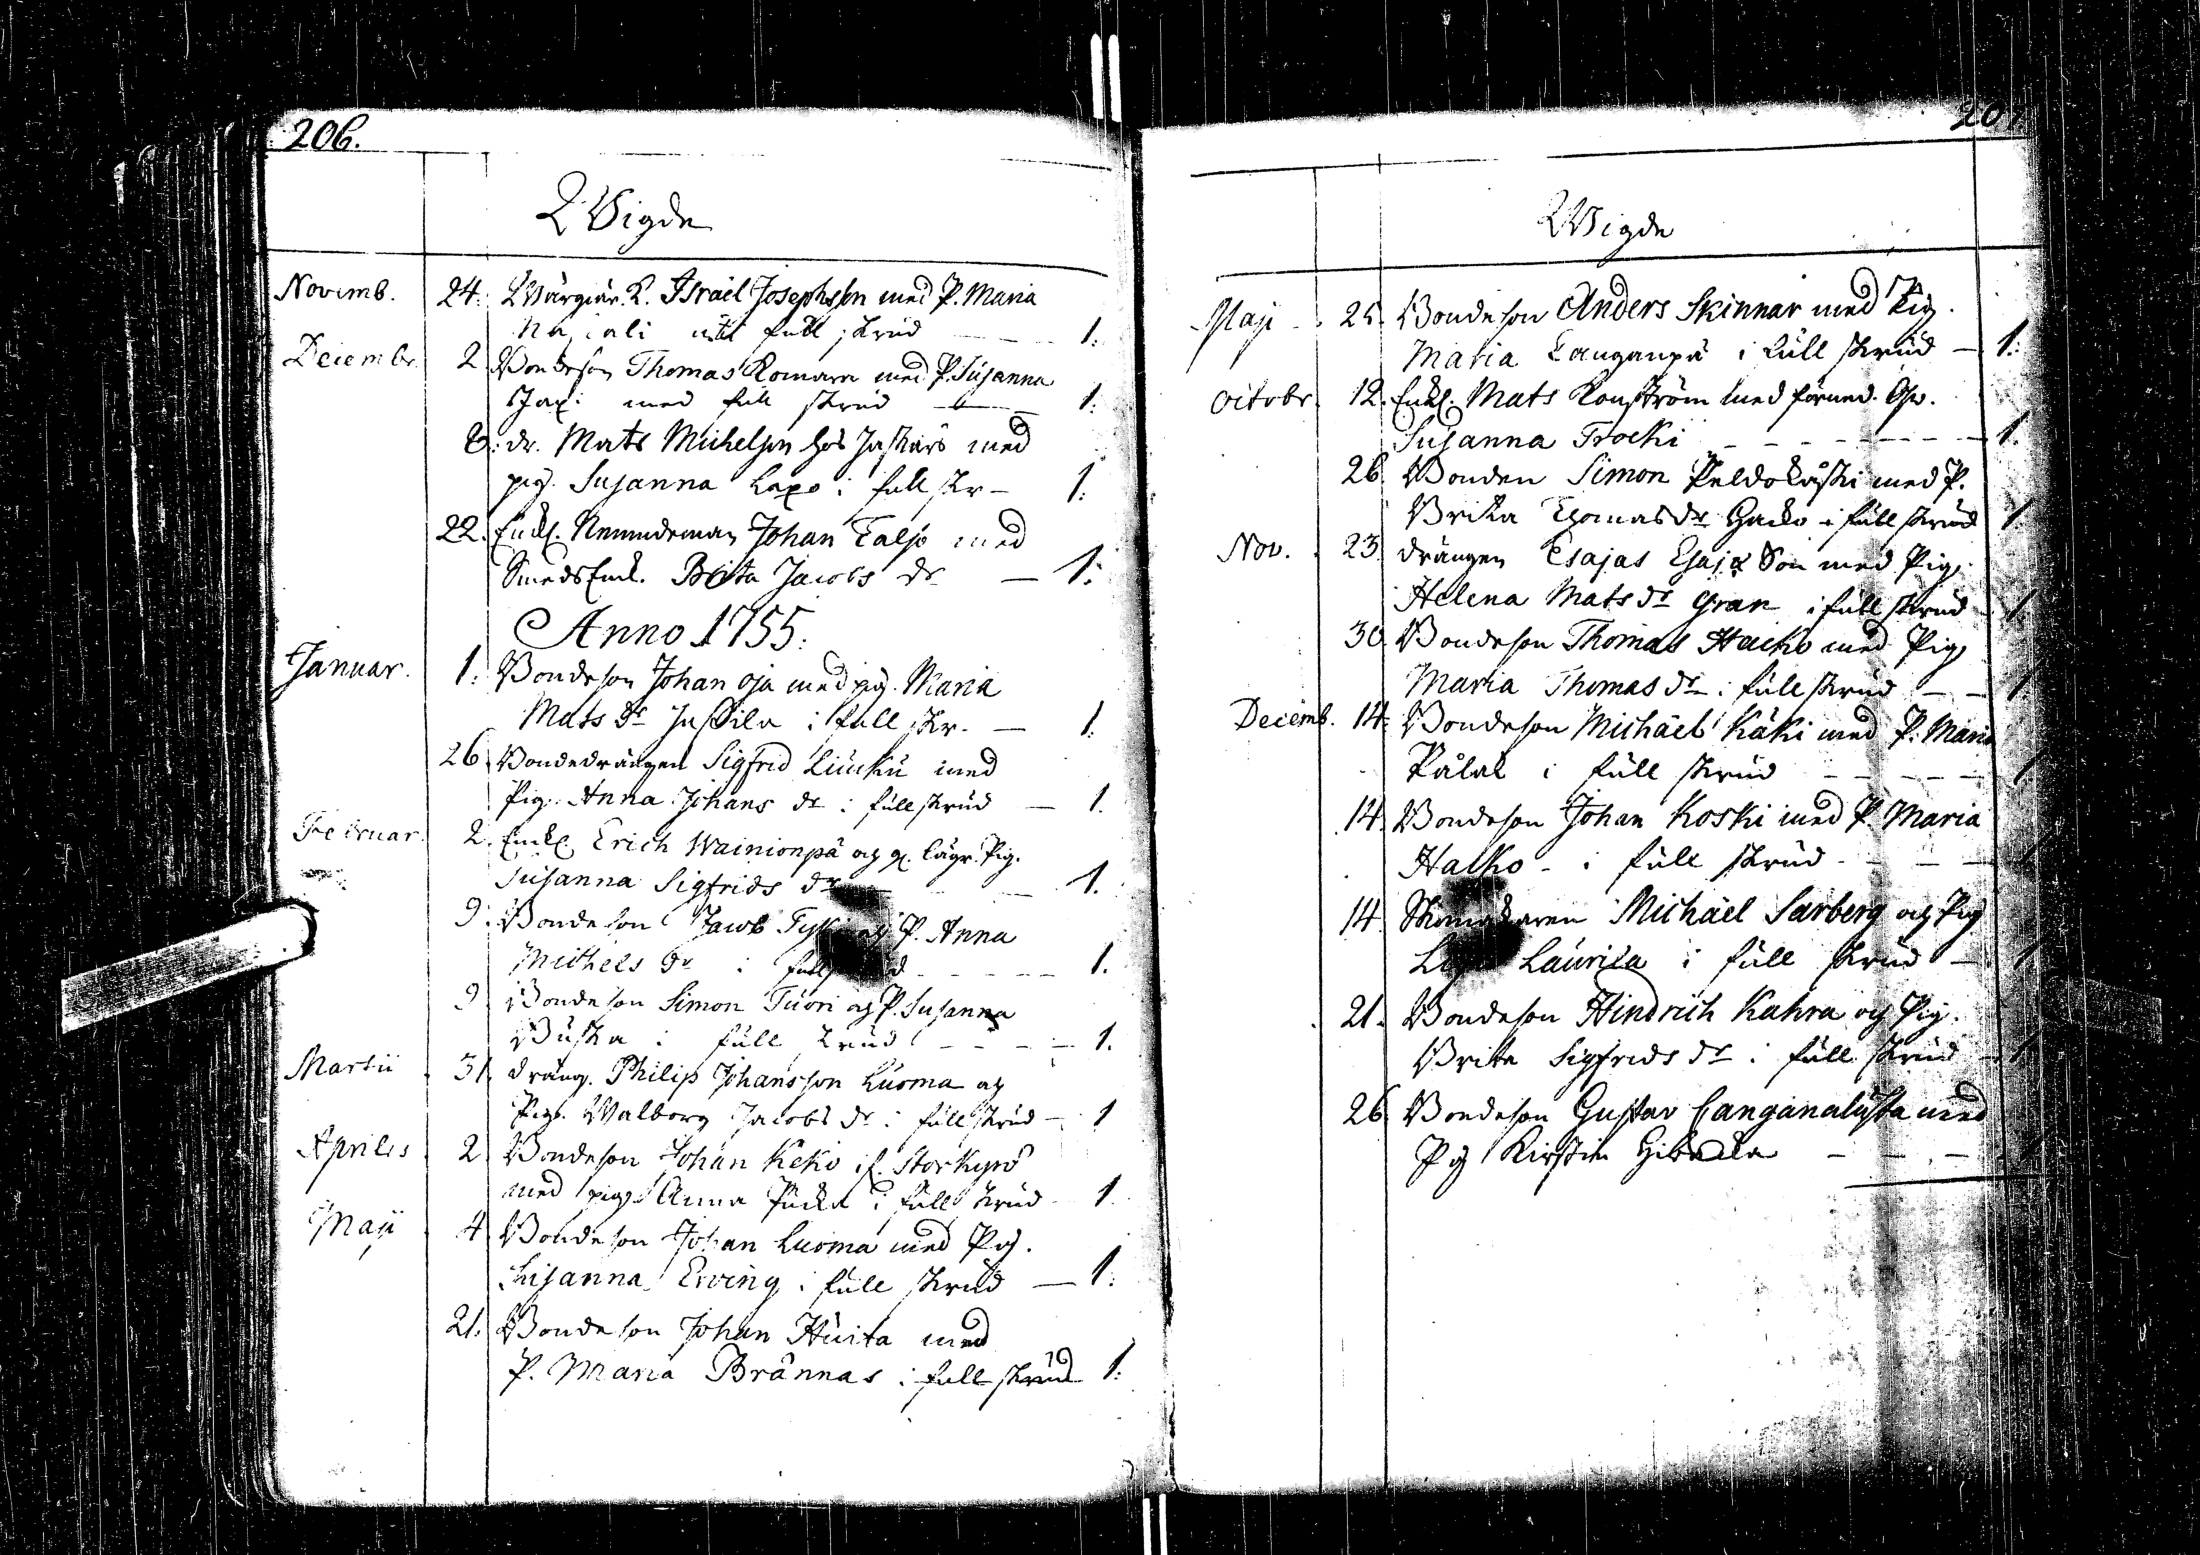 206.
Wigde
Novemb. 24. Israel Josephsson med P. Maria
full skrud 1.
Decembr. 2 Bondeson Thomas Romarn med P. Susanna
med full skrud 1.
8. dr. Mats Michelson hos Jaskars med
pig. Susanna Lapo i full skr. 1.
22. Enkl. Nemndeman Johan Taljo med
Smeds Enk. Brita Jacobs dr 1.
Anno 1755.
Januar. 1. Bondeson Johan oja med pig. Maria
Mats dr Juskila i full skr. 1.
26 Bondedrängen Sigfrid Liuku med
Pig. Anna Johans dr i full skrud 1.
Februar. 2. Enkl. Erich Wainionpä och lägr. Pig.
Susanna Sigfrids dr 1.
9. Bondeson Jacob och P. Anna
Michels dr i full 1.
9. Bondeson Simon Tuori och P. Susanna
i full skrud 1.
Martii 31. dräng. Philip Johansson Luoma och
Pig. Walborg Jacobs dr i full skrud 1
Aprilis 2. Bondeson Johan Keko if. Storkyro
med pig. Anna i full skrud 1
Maji 4 Bondeson Johan Luoma med Pig.
Susanna Erving i full skrud 1.
21. Bondeson Johan Huita med
P. Maria Brännas i full skrud 1.
207
Wigde
Maji 25. Bondeson Anders Skinnar med Pig.
Maria Langanpä i full skrud 1.
Octobr. 12. Enkl. Mats Ronström med
Susanna Trocki 1.
26. Bonden Simon Peldokåski med P.
Brita Thomas dr Hacko i full skrud 1.
Nov. 23. drängen Esajas Esajæ Son med Pig.
Helena Mats dr Gran i full skrud 1
30. Bondeson Thomas Hacko med Pig.
Maria Thomas dr i full skrud 1
Decemb. 14. Bondeson Michäel Käki med P. Maria
Pålal i full skrud 1.
14. Bondeson Johan Koski med P. Maria
Halko i full skrud 1
14. Michäel Sarberg och Pig
Laurila i full skrud 1
21. Bondeson Hindrich Kahra och Pig.
Brita Sigfrids dr i full skrud 1
26. Bondeson Gustav Langanalusta med
Pig Kirstin 1